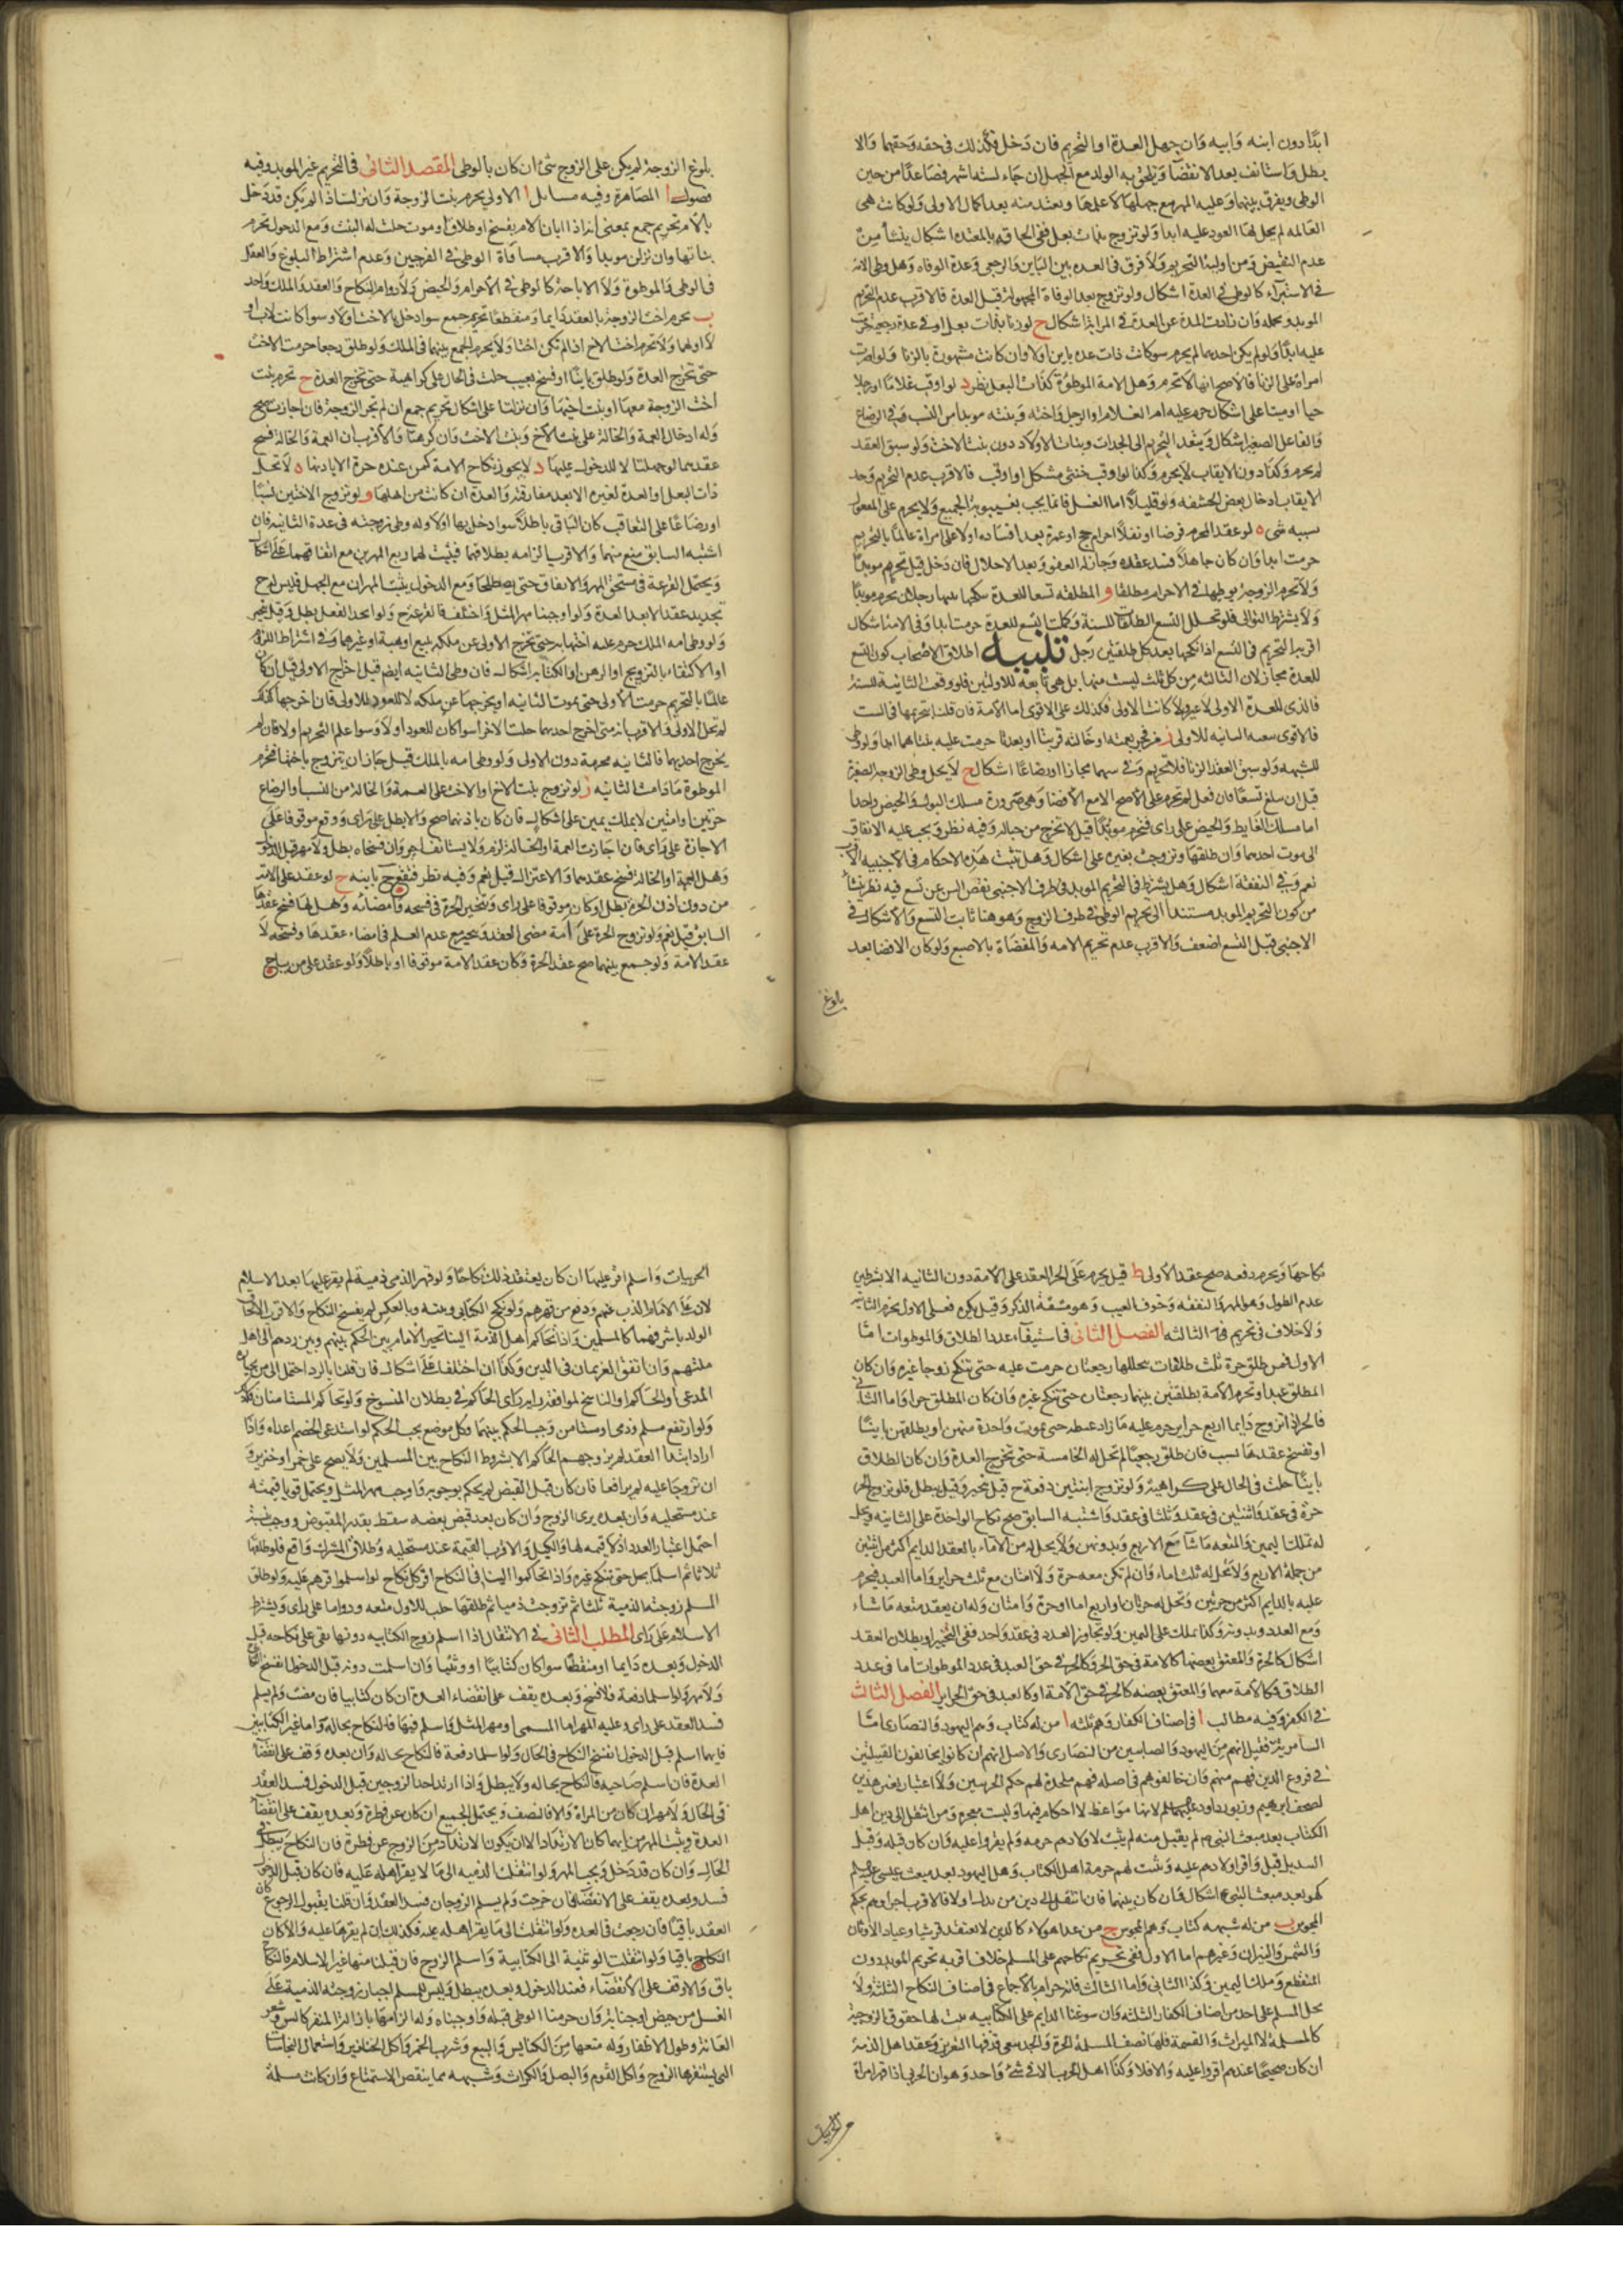 ابدًا دون ابنه وابيه وان جهل العدة او التحريم فان دخل فكذلك فى حقه وحقها والا
بطل واستانف بعد الانقضا ويلحق به الولد مع الجهل ان جاء لستة اشهر فصاعدًا من حين
الوطى ويفرق بينهما وعليه المهر مع جهلها لا علمها وتعتد منه بعد اكمال الاولى ولو كانت هى
العالمه لم يحل لها العود عليه ابدا ولو تزوج بذات بعل ففى الحاقه بالمعتدة اشكال ينشأ مِنْ
عدم التنصيص ومن اولية التحريم ولا فرق فى العده بين البائن والرجعى وعدة الوفاه وهل وطى الامة
فى الاستبراء كالوطى فى العدة اشكال ولو تزوج بعد الوفاة المجهولة قبل العدة فالاقرب عدم التحريم
الموبد وان زادت المدة عن العدة اشكال ح لو زنا بذات بعل او فى عدة رجعية حرمت
عليه ابدًا ولو لم يكن احدهما لم يحرم سوا كانت ذات عده باين او لا وان كانت مشهورة بالزنا ولو اصرت
امراة على الزنا فالاصح انها لا تحرم وهل الامة الموطوءة كذات البعل نظر د لو اوقب غلامًا او رجلا
حيا او ميتا على اشكال حرم عليه ام الغلام او الرجل واخته وبنته موبدا من النسب وفى الرضاع
والفاعل الصغير اشكال ويتعدى التحريم الى الجدات وبنات الاولاد دون بنت الاخت ولو سبق العقد
لم يحرم وكذا دون الايقاب لا يحرم وكذا لو اوقب خنثى مشكل او اوقب فالاقرب عدم التحريم وحد
الايقاب ادخال بعض الحشفه ولو قليلًا اما الغسل فانما يجب بغيبوبة الجميع ولا يحرم على المفعول
بسببه شى ه لو عقد المحرم فرضا او نفلًا احرام حج او عمرة بعد افساده او لا على امراة عالمًا بالتحريم
حرمت ابدا وان كان جاهلًا فسد عقده وجاز له العقد بعد الاحلال فان دخل قيل تحرم موبدًا
ولا تحرم الزوجة بوطيها فى الاحرام مطلقا و المطلقه تسعا للعدة ينكحها بينها رجلان يحرم موبدًا
ولا يشترط التوالى فلو تخلل التسع الطلاق للسنة وكملت التسع للعدة حرمت ابدا وفى الامة اشكال
اقربه التحريم فى التسع اذا نكحها بعد كل طلقتين رجل تنبيه اطلاق الاصحاب كون التسع
للعدة مجاز لان الثالثه مِن كل ثلث ليست منها بل هى تابعه للاوليين فلو وقعت الثانية للسنة
فالذى للعدة الاولى لا غير ولو كانت الاولى فكذلك على الاقوى اما الامة فان قلنا بتحريمها فى الست
فالاقوى تبعية الثانيه للاولى ز من فجر بعمته او خالته قريبتا او بعدتا حرمت عليه بنتاهما ابدا ولو وطى
للشبهه ولو سبق العقد الزنا فلا تحريم وفى بنتيهما مجازا او رضاعًا اشكال ح لا يحل وطى الزوجة الصغيرة
قبل ان تبلغ تسعًا فان فعل لم تحرم على الاصح الا مع الافضا وهى صيرورة مسلك البول والحيض واحدا
اما مسلك الغايط والحيض على راى فتحرم مؤبدًا قيل لا تخرج من حباله وفيه نظر ويجب عليه الانفاق
الى موت احدهما وان طلقها وتزوجت بغيره على اشكال وهل تثبت هذه الاحكام فى الاجنبيه الاقرب
نعم وفى النفقة اشكال وهل يشترط فى التحريم الموبد فى طرف الاجنبى نقص السن عن تسع فيه نظر ينشأ
من كون التحريم الموبد مستندا الى تحريم الوطى فى طرف الزوج وهو هنا ثابت للتسع والاشكال فى
الاجنبى قبل التسع اضعف والاقرب عدم تحريم الامه والمفضاة بالاصبع ولو كان الافضا بعد
بلوغ
بلوغ الزوجة لم يكن على الزوج شئ ان كان بالوطى المقصد الثانى فى التحريم غير الموبد وفيه
فصول ا المصاهرة وفيه مسايل ا الاولى يحرم بنت الزوجة وان نزلت اذا لم يكن قد دخل
بالام تحريم جمع بمعنى انه اذا ابان الام بفسخ او طلاق او موت حلت له البنت ومع الدخول تحرم
بناتها وان نزلن موبدا والاقرب مساواة الوطى فى الفرجين وعدم اشتراط البلوغ والعقل
فى الوطى والموطوة ولا الاباحة كالوطى فى الاحرام والحيض ولا دوام النكاح والعقد والملك واحد
ب تحرم اخت الزوجة بالعقد دايما ومنقطعا تحريم جمع سوا دخل بالاخت او لا وسوا كانت لاب او
لام او لهما ولا تحرم اخت الاخ اذا لم تكن اختا ولا يحرم الجمع بينهما فى الملك ولو طلق رجعيا حرمت الاخت
حتى تخرج العدة ولو طلق باينًا او فسخ بعيب حلت فى الحال على كراهية حتى تخرج العدة ح تحرم بنت
اخت الزوجة معها او بنت اخيها وان نزلتا على اشكال تحريم جمع ان لم تجز الزوجة فان اجازت صح
وله ادخال العمة والخالة على بنت الاخ وبنت الاخت وان كرهتا والاقرب ان للعمة والخالة فسخ
عقدهما لو جهلتا لا للدخول عليهما د لا يجوز نكاح الامة لمن عنده حرة الا باذنها ه لا تحل
ذات البعل او العدة لغيره الا بعد مفارقته والعدة ان كانت من اهلها و لو تزوج الاختين نسبًا
او رضاعًا على التعاقب كان الباقى باطلًا سوا دخل بها او لا وله وطى زوجته فى عدة الثانية فان
اشتبه السابق منع منهما والاقرب الزامه بطلاقهما فيثبت لهما ربع المهرين مع اتفاقهما على اشكال
ويحتمل القرعة فى مستحق المهر والايقاف حتى يصطلحا ومع الدخول يثبت المهران مع الجهل فليس له ح
تجديد عقد الا بعد العدة ولو اوجبنا مهر المثل واختلفا فالقرعة ح ولو اتحد الفعل بطل وقيل يتخير
ولو وطى امه الملك حرم عليه اختها به حتى تخرج الاولى عن ملكه ببيع او هبة او غيرهما وفى اشتراط اللزوم
او الاكتفاء بالتزويج او الرهن او الكتابه اشكال فان وطى الثانيه ايضا قبل اخراج الاولى قيل ان كان
عالمًا بالتحريم حرمت الاولى حتى يموت الثانيه او يخرجها عن ملكه لا للعود للاولى فان اخرجها كذلك
لم تحل الاولى والاقرب انه متى اخرج احديهما حلت الاخرى سوا كان للعود او لا وسوا علم التحريم او لا فان لم
يخرج احديهما فالثانيه محرمة دون الاولى ولو وطى امه بالملك قيل جاز ان يتزوج باختها فتحرم
الموطوة ما دامت الثانيه ز لو تزوج بنت الاخ او الاخت على العمة والخالة من النسب او الرضاع
حرتين او امتين لا بملك يمين على اشكال فان كان باذنهما صح والا بطل على راى ووقع موقوفا على
الاجازة على راى فان اجازت العمة او الخالة لزم ولا يستانف اخر وان فسخاه بطل ولا مهر قبل الدخول
وهل للعمة او الخالة فسخ عقدهما والاعتزال قيل نعم وفيه نظر فتقع ح باينه ح لو عقد على الامة
من دون اذن الحرة بطل او كان موقوفا على راى وتتخير الحرة فى فسخه وامضائه وهل لها فسخ عقدها
السابق قيل نعم ولو تزوج الحرة على امة مضى العقد وتتخير مع عدم العلم فى امضاء عقدها وفسخه لا
عقد الامة ولو جمع بينهما صح عقد الحرة وكان عقد الامة موقوفا او باطلًا ولو عقد على من يباح
نكاحها ويحرم دفعه صح عقد الاولى ط قيل يحرم على الحر العقد على الامة دون الثانيه الا بشرطين
عدم الطول وهو المهر والنفقه وخوف العيب وهو مشقة الذكر وقيل يكره فعلى الاول يحرم الثانية
ولا خلاف فى تحريم الثالثه الفصل الثانى فى استيفاء عدد الطلاق والموطوات امّا
الاول فمن طلق حرة ثلث طلقات يتخللها رجعتان حرمت عليه حتى تنكح زوجا غيره وان كان
المطلق عبدا وتحرم الامة بطلقتين بينهما رجعتان حتى تنكح غيره وان كان المطلق حرا واما الثانى
فالحر اذا تزوج دايما اربع حراير حرم عليه ما زاد غبطه حتى تموت واحدة منهن او يطلقهن باينًا
او تفسخ عقدها بسبب فان طلق رجعيا لم تحل له الخامسة حتى تخرج العدة وان كان الطلاق
باينًا حلت فى الحال على كراهية ولو تزوج اثنتين دفعة ح قيل تخير وقيل يبطل فلو تزوج الحر
حرة فى عقد واثنتين فى عقد وثلثا فى عقد واشتبه السابق صح نكاح الواحدة على الثانيه ويحل
له بملك اليمين والمتعه ما شاء مع الاربع وبدونهن ولا يحل له من الاماء بالعقد الدايم اكثر من اثنتين
من جملة الاربع ولا تحل له ثلث اماء وان لم تكن معه حرة ولا امتان مع ثلث حراير واما العبد فيحرم
عليه بالدايم اكثر من حرتين وتحل له حرتان او اربع اما او حرة وامتان وله ان يعقد متعه ما شاء
ومع العدد وبدونه وكذا بملك اليمين ولو تجاوز العدد فى عقد واحد ففى التخيير او بطلان العقد
اشكال كالحرة والمعتق بعضها كالامة فى حق الحر وكالحرة فى حق العبد فى عدد الموطوات اما فى عدد
الطلاق فكالامة معهما والمعتق بعضه كالحر فى حق الامة او كالعبد فى حق الحراير الفصل الثالث
فى الكفر وفيه مطالب ا فى اصناف الكفار وهم ثلثه ا من له كتاب وهم اليهود والنصارى امّا
السامرية فقيل انهم من اليهود والصابيين من النصارى والاصل انهم ان كانوا يخالفون القبيلتين
فى فروع الدين فهم منهم وان خالفوهم فى اصله فهم ملحدة لهم حكم الحربيين ولا اعتبار بغير هذين
لصحف ابرهيم وزبور داود عليهما السلم لانها مواعظ لا احكام فيها وليست معجزة ومن انتقل الى دين اهل
الكتاب بعد مبعث النبى لم يقبل منه لم يثبت لاولادهم حرمه ولم يقروا عليه وان كان قبله وقبل
التبديل قبل واقر اولادهم عليه وثبت لهم حرمة اهل الكتاب وهل اليهود بعد مبعث عيسى عليه السلم
كهو بعد مبعث النبى اشكال وان كان بينهما فان انتقل الى دين من بدل او لا فالاقرب اجراوهم بحكم
المجوس ب من له شبهه كتاب وهم المجوس ح من عدا هولاء كالذين لا يعتقد شيا وعباد الاوثان
والشمس والنيران وغيرهم اما الاول ففى تحريم نكاحهم على المسلم خلاف اقربه تحريم الموبد دون
المنقطع وملك اليمين وكذا الثانى واما الثالث فانه حرام بالاجماع فى اصناف النكاح الثلثة ولا
تحل المسلم على احد من اصناف الكفار الثلثه وان سوغنا الدايم على الكتابيه ثبت لها حقوق الزوجية
كالمسلمة الا الميراث والقسمة فلها نصف المسلمة الحرة والحد ففى قذفها التعزير وعقد اهل الذمة
ان كان صحيحًا عندهم اقروا عليه والا فلا وكذا اهل الحرب الا فى شئ واحد وهو ان الحربى اذا قهر امراة
من الحربيات
الحربيات واسلم اقر عليها ان كان يعتقد ذلك نكاحًا ولو قهر الذمى ذمية لم يقر عليها بعد الاسلام
لان على الامام الذب عنهم ودفع من قهرهم ولو نكح الكتابى وثنيه وبالعكس لم يفسخ النكاح والاقرب الحاق
الولد باشرفهما كالمسلمين واذا تحاكم اهل الذمة الينا تخير الامام بين الحكم بينهم وبين ردهم الى اهل
ملتهم وان اتفق الغريمان فى الدين وكذا ان اختلفا على اشكال فان قلنا بالرد احتمل الى من يختاره
المدعى او الحاكم او الناسخ لموافقته راى الحاكم فى بطلان المنسوخ ولو تحاكم المستامنان فكذلك
ولو ارتفع مسلم وذمى او مستامن وجب الحكم بينهما وكل موضع يجب الحكم لو استدعى الخصم اعداه واذا
ارادا ابتدا العقد لم يزوجهم الحاكم الا بشروط النكاح بين المسلمين ولا يصح على خمر او خنزير و
ان تزوجا عليه ثم ترافعا فان كان قبل القبض لم يحكم بوجوبه واوجب مهر المثل ويحتمل قويا قيمته
عند مستحليه وان بعده برى الزوج وان كان بعد قبض بعضه سقط بقدر المقبوض ووجب بنسبته
احتمل اعتبار العدد اذ لا قيمه لها والكيل والاقرب القيمة عند مستحليه وطلاق المشرك واقع فلو طلقها
ثلاثا ثم اسلما لم يحل حتى تنكح غيره واذا تحاكموا الينا فى النكاح اقر كل نكاح لو اسلموا اقرهم عليه ولو طلق
المسلم زوجته الذمية ثلثا ثم تزوجت ذميا ثم طلقها حلت للاول متعه ودواما على راى ويشترط
الاسلام على راى المطلب الثانى فى الانتقال اذا اسلم زوج الكتابيه دونها بقى على نكاحه قبل
الدخول وبعده دايما او منقطعا سوا كان كتابيًا او وثنيا وان اسلمت دونه قبل الدخول انفسخ النكاح
ولا مهر ولو اسلما دفعة فلا فسخ وبعده يقف على انقضاء العدة ان كان كتابيا فان مضت ولم يسلم
فسد العقد على راى وعليه المهر اما المسمى او مهر المثل واسلم فيها فالنكاح بحاله واما غير الكتابيين
فايهما اسلم قبل الدخول انفسخ النكاح فى الحال ولو اسلما دفعة فالنكاح بحاله وان بعده وقف على انقضاء
العدة فان اسلم صاحبه فالنكاح بحاله والا يبطل واذا ارتد احد الزوجين قبل الدخول فسد العقد
فى الحال ولا مهر ان كان من المراة والا فالنصف ويحتمل الجميع ان كان عن فطرة وبعده يقف على انقضاء
العدة ويثبت المهر من ايهما كان الارتداد الا ان يكون الارتداد من الزوج عن فطرة فان النكاح يبطل فى
الحال وان كان قد دخل ويجب المهر ولو انتقلت الذميه الى ما لا يقر اهله عليه فان كان قبل الدخول
فسد وبعده يقف على الانقضا فان خرجت ولم يسلم الزوجان فسد العقد وان قلنا بقبول الرجوع كان
العقد باقيًا فان رجعت فى العده ولو انتقلت الى ما يقر اهله عليه فكذلك ان لم يقرها عليه والا كان
النكاح باقيا ولو انتقلت الوثنية الى الكتابية واسلم الزوج فان قبلنا منها غير الاسلام فالنكاح
باق والا وقف على الانقضاء فعند الدخول وبعده يبطل وليس للمسلم اجبار زوجته الذمية على
الغسل من حيض او جنابة وان حرمنا الوطى قبله واوجبناه وله الزامها بازالة المنفر كالنتن وشعر
العانة وطول الاظفار وله منعها من الكنايس والبيع وشرب الخمر واكل الخنازير واستعمال النجاسات
التى يستقذرها الزوج واكل الثوم والبصل والكراث وشبهه مما ينقص الاستمتاع وان كانت مسلمة